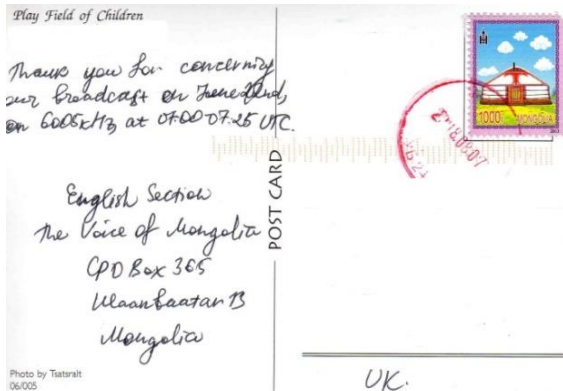 Play Field of Children
Thank you for concerning
our broadcast on June 22nd,
on 6005kHz at 07.00-07.25 UTC.
English Section
the Voice of Mongolia
CPO Box 365
Ulaanbaatar 13
Mongolia
POST CARD
1000₮ MONGOLIA
18.08.07
Photo by Tsatsralt
06/005
UK.